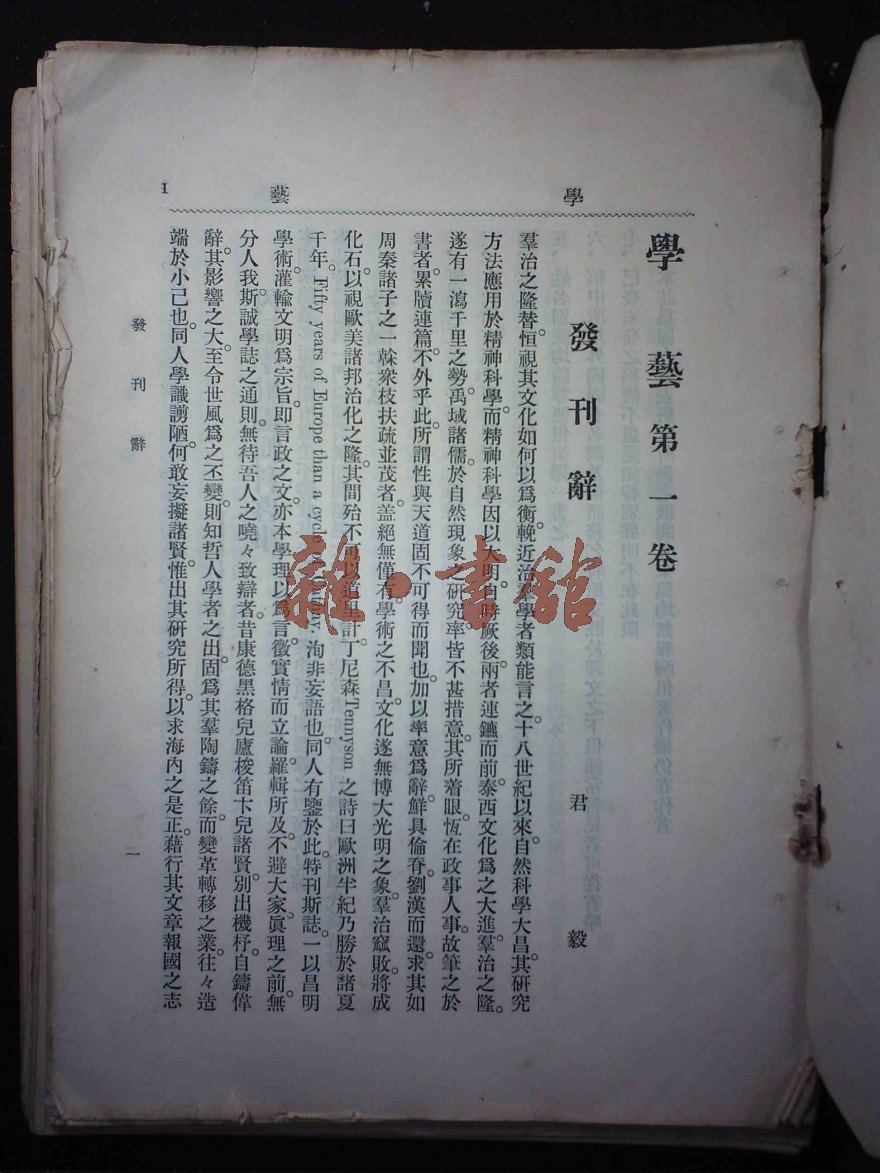 學藝
1
學藝第一卷
發刊辭
君毅
羣治之隆替。恒視其文化如何以爲衡。輓近治羣學者類能言之。十八世紀以來。自然科學大昌。其硏究
方法應用於精神科學。而精神科學因以大明。自時厥後。兩者連鑣而前。泰西文化爲之大進。羣治之隆。
遂有一瀉千里之勢。禹域諸儒。於自然現象之硏究。率皆不甚措意。其所着眼。恆在政事人事。故筆之於
書者。累牘連篇。不外乎此。所謂性與天道固不可得而聞也。加以率意爲辭。鮮具倫脊。劉漢而還。求其如
周秦諸子之一榦衆枝扶疏並茂者。盖絕無僅有。學術之不昌。文化遂無博大光明之象。羣治竄敗。將成
化石。以視歐美諸邦治化之隆。其間殆不可以道里計。丁尼森Tennyson 之詩曰歐洲半紀乃勝於諸夏
千年。Fifty years of Europe than a cycle of Cathay. 洵非妄語也。同人有鑒於此。特刊斯誌。一以昌明
學術。灌輸文明爲宗旨。卽言政之文。亦本學理以爲言。徵實情而立論。羅輯所及。不避大家。眞理之前。無
分人我。斯誠學誌之通則。無待吾人之曉々致辯者。昔康德黑格兒廬梭笛卞兒諸賢。別出機杼。自鑄偉
辭。其影響之大。至令世風爲之丕變。則知哲人學者之出。固爲其羣陶鑄之餘。而變革轉移之業。往々造
端於小己也。同人學識謭陋。何敢妄擬諸賢。惟出其硏究所得。以求海內之是正。藉行其文章報國之志
發刊辭
一
雜·書館